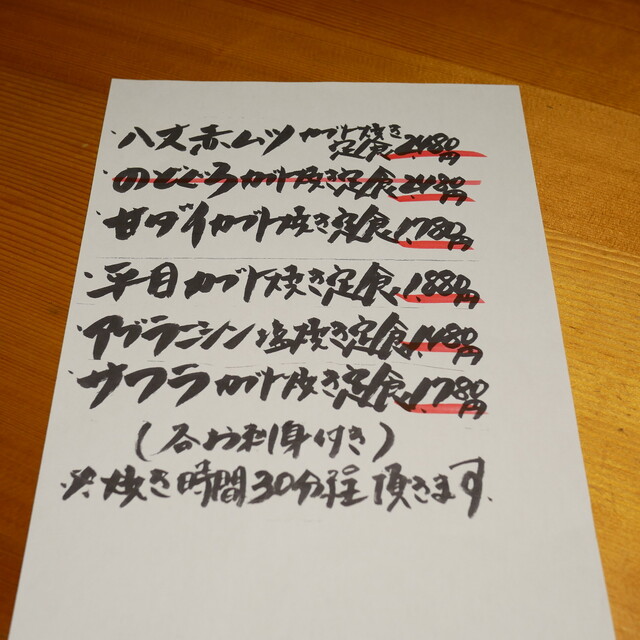 ・八丈赤ムツカブト焼き定食2,480円
・のどぐろカブト焼き定食2,480円
・甘ダイカブト焼き定食1,780円
・平目カブト焼き定食1,880円
・アブラニシン塩焼き定食1,480円
・サワラカブト焼き定食1,780円
(各お刺身付き)
※焼き時間30分程頂きます。